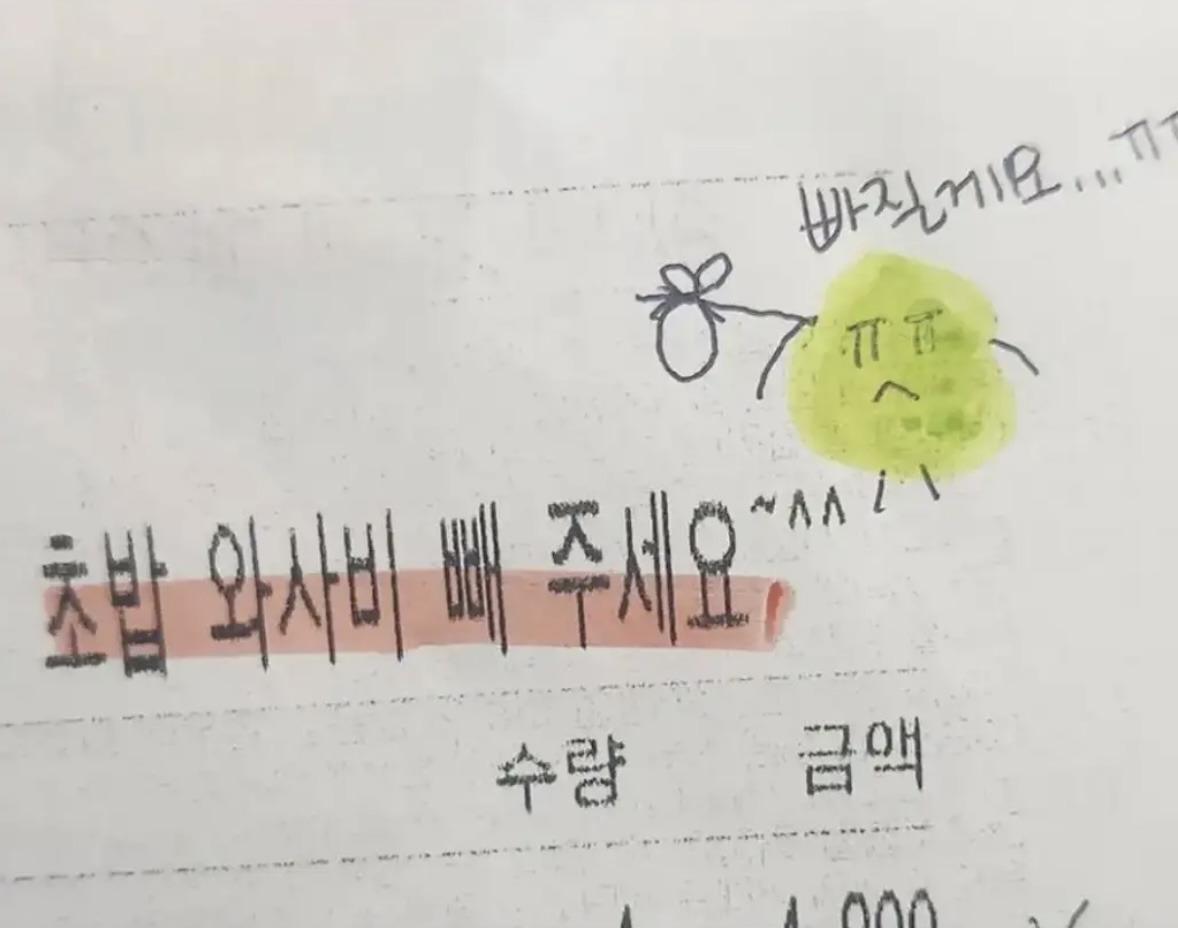 빠질게요...ㅠㅠ
ㅠㅠ
초밥 와사비 빼 주세요~^^
수량 금액